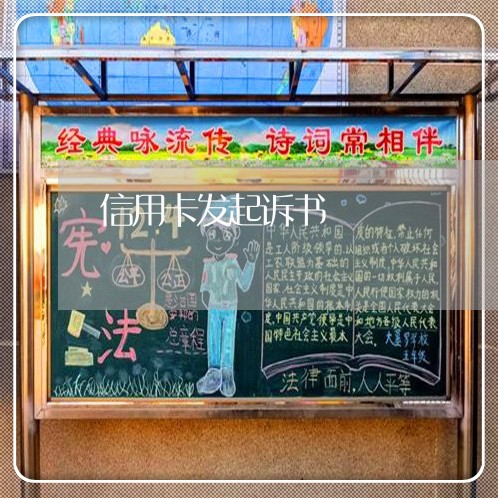 经典咏流传 诗词常相伴
信用卡发起诉书
宪法
12.4
公平
公正
总章程
中华人民共和国
是工人阶级领导的,以
工农联盟为基础的
人民民主专政的社会主义
国家,社会主义制度是中
华人民共和国的根本制
度,中国共产党领导是中
国特色社会主义最本
质的特征,禁止任何
组织或者个人破坏社会
主义制度,中华人民共和
国的一切权利属于人民,
人民行使国家权力的机
关是全国人民代表大会
和地方各级人民代表
大会.
五年级
法律面前,人人平等